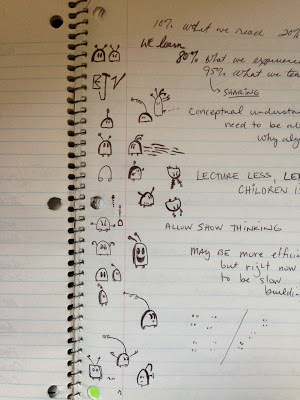 10% what we read 20%
WE learn
80% what we experience
95% what we tea
SHARING
Conceptual understan
need to be a
why alg
LECTURE LESS, LE
CHILDREN
ALLOW SHOW THINKING
MAY BE more effici
but right now
to be slow
buildi